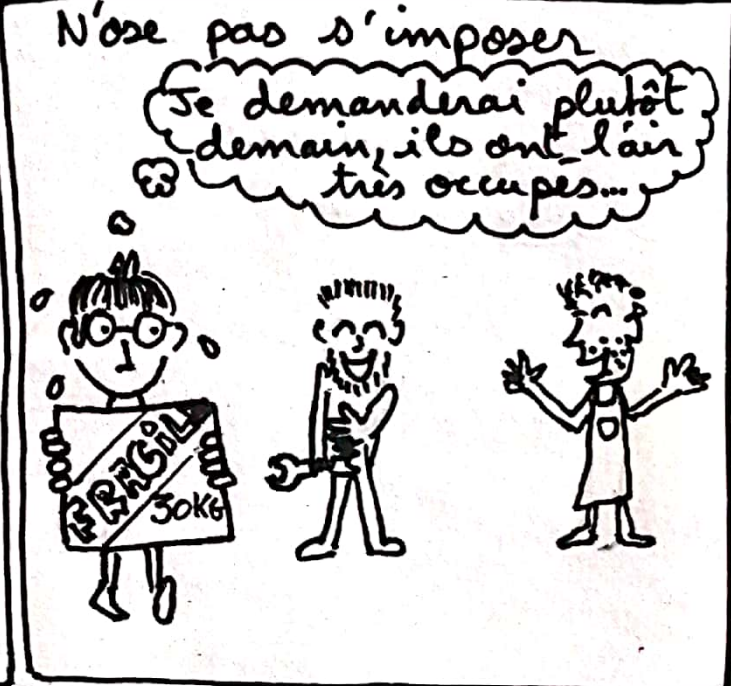 N'ose pas s'imposer
Je demanderai plutôt
demain, ils ont l'air
très occupés...
FRAGILE
30KG